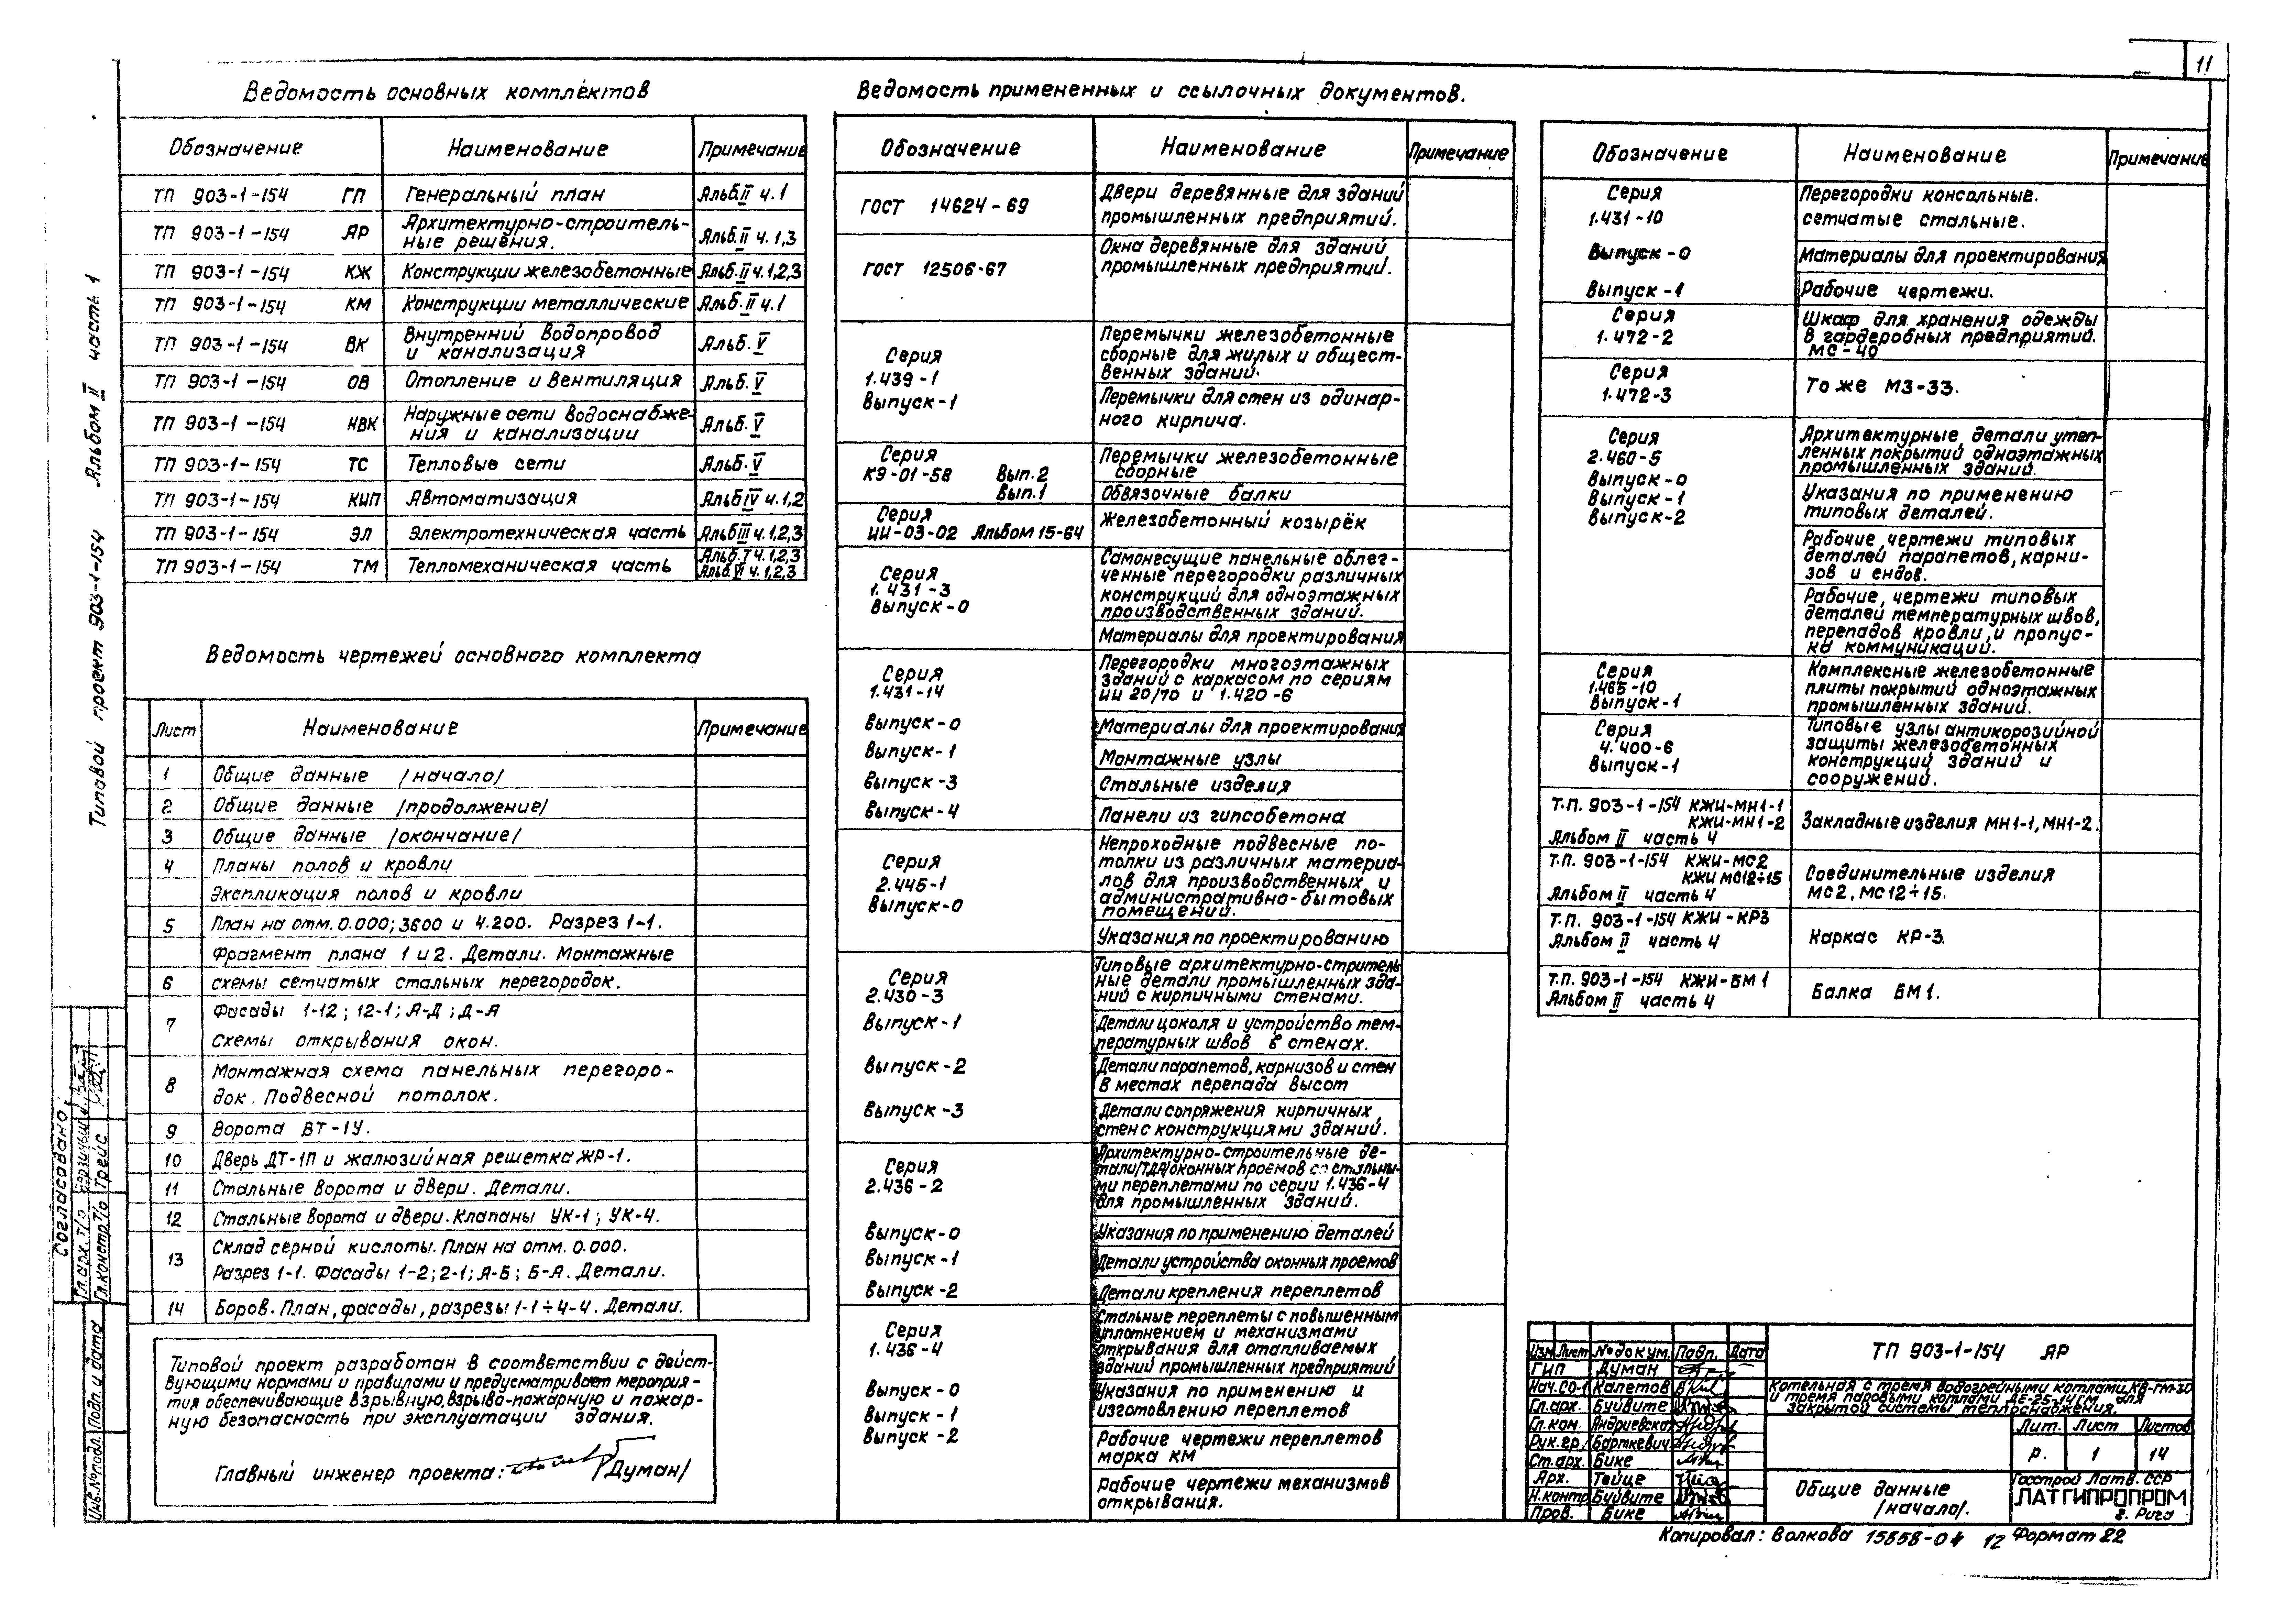 11
Ведомость основных комплектов
Обозначение Наименование Примечание
ТП 903-1-154 ГП Генеральный план Альб.II ч.1
ТП 903-1-154 АР Архитектурно-строитель-
ные решения. Альб.II ч.1,3
ТП 903-1-154 КЖ Конструкции железобетонные Альб.II ч.1,2,3
ТП 903-1-154 КМ Конструкции металлические Альб.II ч.1
ТП 903-1-154 ВК Внутренний водопровод
и канализация Альб.V
ТП 903-1-154 ОВ Отопление и вентиляция Альб.V
ТП 903-1-154 НВК Наружные сети водоснабже-
ния и канализации Альб.V
ТП 903-1-154 ТС Тепловые сети Альб.V
ТП 903-1-154 КИП Автоматизация Альб IV ч.1,2
ТП 903-1-154 ЭЛ Электротехническая часть Альб III ч.1,2,3
ТП 903-1-154 ТМ Тепломеханическая часть Альб.I ч.1,2,3
Альб.VI ч.1,2,3
Ведомость чертежей основного комплекта
Лист Наименование Примечание
1 Общие данные /начало/
2 Общие данные /продолжение/
3 Общие данные /окончание/
4 Планы полов и кровли
Экспликация полов и кровли
5 План на отм.0.000; 3600 и 4.200. Разрез 1-1.
Фрагмент плана 1 и 2. Детали. Монтажные
6 схемы сетчатых стальных перегородок.
7 Фасады 1-12; 12-1; А-Д; Д-А
Схемы открывания окон.
8 Монтажная схема панельных перегоро-
док. Подвесной потолок.
9 Ворота ВТ-1У.
10 Дверь ДТ-1П и жалюзийная решетка ЖР-1.
11 Стальные ворота и двери. Детали.
12 Стальные ворота и двери. Клапаны УК-1; УК-4.
13 Склад серной кислоты. План на отм. 0.000.
Разрез 1-1. Фасады 1-2; 2-1; А-Б; Б-А. Детали.
14 Боров. План, фасады, разрезы 1-1÷4-4. Детали.
Типовой проект разработан в соответствии с дейст-
вующими нормами и правилами и предусматривает мероприя-
тия обеспечивающие взрывную, взрыво-пожарную и пожар-
ную безопасность при эксплуатации здания.
Главный инженер проекта: /Думан/
Ведомость примененных и ссылочных документов.
Обозначение Наименование Примечание
ГОСТ 14624-69 Двери деревянные для зданий
промышленных предприятий.
ГОСТ 12506-67 Окна деревянные для зданий
промышленных предприятий.
Серия
1.439-1
Выпуск-1
Перемычки железобетонные
сборные для жилых и общест-
венных зданий.
Перемычки для стен из одинар-
ного кирпича.
Серия
К9-01-58 Вып.2
Вып.1
Перемычки железобетонные
сборные
Обвязочные балки
Серия
ИИ-03-02 Альбом 15-64
Железобетонный козырёк
Серия
1.431-3
Выпуск-0
Самонесущие панельные облег-
ченные перегородки различных
конструкций для одноэтажных
производственных зданий.
Материалы для проектирования
Серия
1.431-14
Перегородки многоэтажных
зданий с каркасом по сериям
ИИ 20/70 и 1.420-6
Выпуск-0 Материалы для проектирования
Выпуск-1 Монтажные узлы
Выпуск-3 Стальные изделия
Выпуск-4 Панели из гипсобетона
Серия
2.445-1
Выпуск-0
Непроходные подвесные по-
толки из различных материа-
лов для производственных и
административно-бытовых
помещений.
Указания по проектированию
Серия
2.430-3
Типовые архитектурно-стритель-
ные детали промышленных зда-
ний с кирпичными стенами.
Выпуск-1 Детали цоколя и устройство тем-
пературных швов в стенах.
Выпуск-2 Детали парапетов, карнизов и стен
в местах перепада высот
Выпуск-3 Детали сопряжения кирпичных
стен с конструкциями зданий.
Серия
2.436-2
Архитектурно-строительные де-
тали /ТДА/ оконных проемов со стальны-
ми переплетами по серии 1.436-4
для промышленных зданий.
Выпуск-0 Указания по применению деталей
Выпуск-1 Детали устройства оконных проемов
Выпуск-2 Детали крепления переплетов
Серия
1.436-4
Стальные переплеты с повышенным
уплотнением и механизмами
открывания для отапливаемых
зданий промышленных предприятий
Выпуск-0 Указания по применению и
изготовлению переплетов
Выпуск-1
Выпуск-2
Рабочие чертежи переплетов
марка КМ
Рабочие чертежи механизмов
открывания.
Обозначение Наименование Примечание
Серия
1.431-10
Перегородки консольные.
сетчатые стальные.
Выпуск-0 Материалы для проектирования
Выпуск-1 Рабочие чертежи.
Серия
1.472-2
Шкаф для хранения одежды
в гардеробных предприятий.
МС-40
Серия
1.472-3
То же МЗ-33.
Серия
2.460-5
Выпуск-0
Выпуск-1
Выпуск-2
Архитектурные детали утеп-
ленных покрытий одноэтажных
промышленных зданий.
Указания по применению
типовых деталей.
Рабочие чертежи типовых
деталей парапетов, карни-
зов и ендов.
Рабочие, чертежи типовых
деталей температурных швов,
перепадов кровли, и пропус-
ка коммуникаций.
Серия
1.465-10
Выпуск-1
Комплексные железобетонные
плиты покрытий одноэтажных
промышленных зданий.
Серия
4.400-6
Выпуск-1
Типовые узлы антикорозийной
защиты железобетонных
конструкций зданий и
сооружений.
Т.П. 903-1-154 КЖИ-МН1-1
КЖИ-МН1-2
Альбом II часть 4
Закладные изделия МН1-1, МН1-2.
Т.П. 903-1-154 КЖИ-МС2
КЖИ МС12÷15
Альбом II часть 4
Соединительные изделия
МС2, МС12÷15.
Т.П. 903-1-154 КЖИ-КР3
Альбом II часть 4
Каркас КР-3.
Т.П. 903-1-154 КЖИ-БМ1
Альбом II часть 4
Балка БМ1.
Изм Лист № докум. Подп. Дата
ГИП Думан
Нач.СО-1 Калетов
Гл.арх. Буйвите
Гл.кон. Андриевская
Рук.гр. Барткевич
Ст.арх. Бике
Арх. Тейце
Н.контр Буйвите
Пров. Бике
ТП 903-1-154 АР
Котельная с тремя водогрейными котлами КВ-ГМ-30
и тремя паровыми котлами ДЕ-25-14ГМ для
закрытой системы теплоснабжения.
Лит. Лист Листов
Р. 1 14
Общие данные
/начало/.
Госстрой Латв. ССР
ЛАТГИПРОПРОМ
г. Рига
Копировал: Волкова 15858-04 12 Формат 22
Типовой проект 903-1-154 Альбом II часть 1
Согласовано:
Гл.арх.Т/о
Гл.констр.Т/о Трейс
Подп. и дата
Инв.№подл.